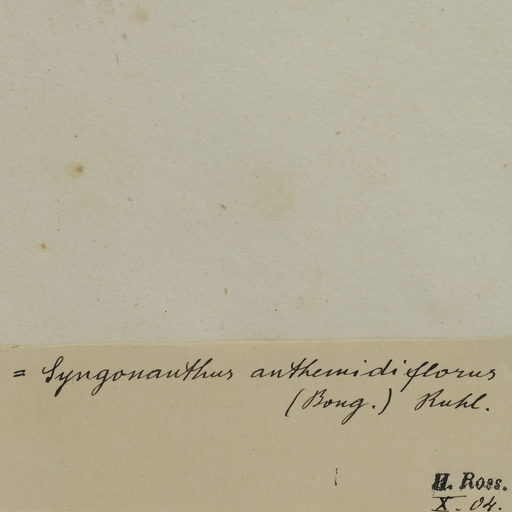 = Syngonanthus anthemidiflorus
(Bong.) Ruhl.
H. Ross.
X. 04.